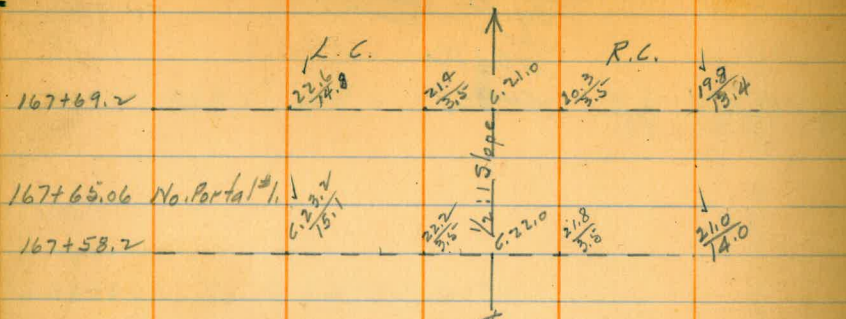 L.C. R.C.
167+69.2 22.6/14.8 21.4/3.5 C.21.0 20.3/3.5 19.8/13.4
1/2:1 Slope
167+65.06 No. Portal #1.
167+58.2 C.23.2/15.1 22.2/3.5 C.22.0 21.8/3.5 21.0/14.0